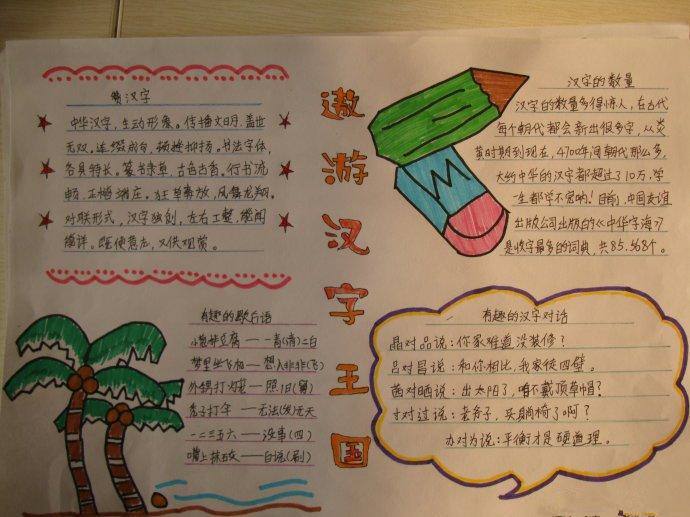 赞汉字
中华汉字，生动形象。传播文明，盖世
无双。连缀成句，顿挫抑扬。书法字体，
各具特长。篆书隶草，古色古香。行书流
畅，正楷端庄。狂草奔放，凤舞龙翔。
对联形式，汉字独创，左右工整，
既使意志，又供观赏。
遨游汉字王国
汉字的数量
汉字的数量多得惊人，在古代
每个朝代都会新出很多字，从炎
黄时期到现在，4700年间朝代那么多，
大约中华的汉字都超过了10万，学
一生都学不完哟！目前，中国友谊
出版公司出版的《中华字海》
是收字最多的词典，共85.568个。
有趣的歇后语
小葱拌豆腐——青(清)二白
梦里坐飞机——想入非非(飞)
外甥打灯笼——照旧(舅)
秃子打伞——无法(发)无天
一二三五六——没事(四)
嘴上抹石灰——白说(刷)
有趣的汉字对话
晶对品说：你家难道没装修？
吕对昌说：和你相比，我家徒四壁。
茜对晒说：出太阳了，咱不戴顶草帽？
寸对过说：老爷子，买躺椅了啊？
办对为说：平衡才是硬道理。